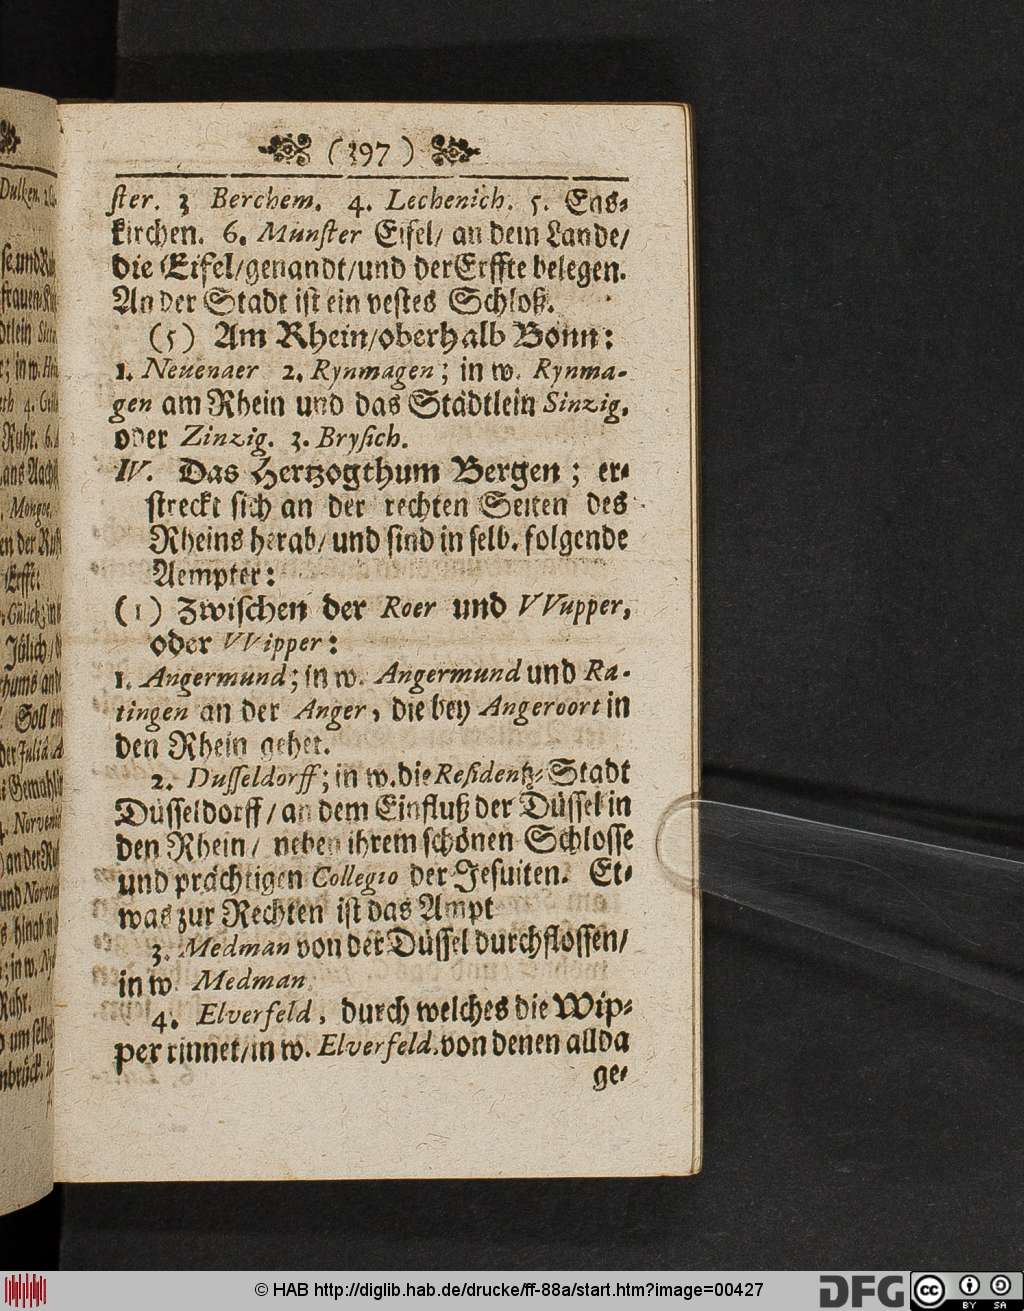 (397)
ster. 3 Berchem. 4. Lechenich. 5. Eus-
kirchen. 6. Münster Eifel/ an dem Lande/
die Eifel/genandt/und der Erffte belegen.
An der Stadt ist ein vestes Schloß.
(5) Am Rhein/oberhalb Bonn:
1. Neuenaer 2. Rynmagen; in w. Rynma-
gen am Rhein und das Städtlein Sinzig,
oder Zinzig. 3. Brysich.
IV. Das Hertzogthum Bergen; er-
streckt sich an der rechten Seiten des
Rheins herab/ und sind in selb. folgende
Aempter:
(1) Zwischen der Roer und VVupper,
oder VVipper:
1. Angermund; in w. Angermund und Ra-
tingen an der Anger, die bey Angeroort in
den Rhein gehet.
2. Dusseldorff; in w. die Residentz-Stadt
Düsseldorff/ an dem Einfluß der Düssel in
den Rhein/ neben ihrem schönen Schlosse
und prächtigen Collegio der Jesuiten. Et-
was zur Rechten ist das Ampt
3. Medman von der Düssel durchflossen/
in w. Medman
4. Elverfeld, durch welches die Wip-
per rinnet/in w. Elverfeld. von denen allda
ge-
© HAB http://diglib.hab.de/drucke/ff-88a/start.htm?image=00427
DFG
cc BY SA